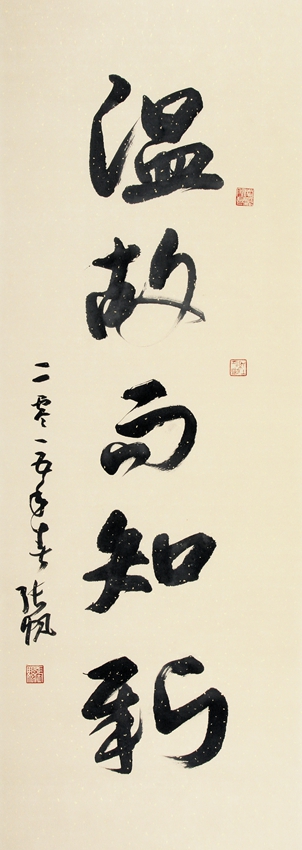 温故而知新
二零一五年春 张帆